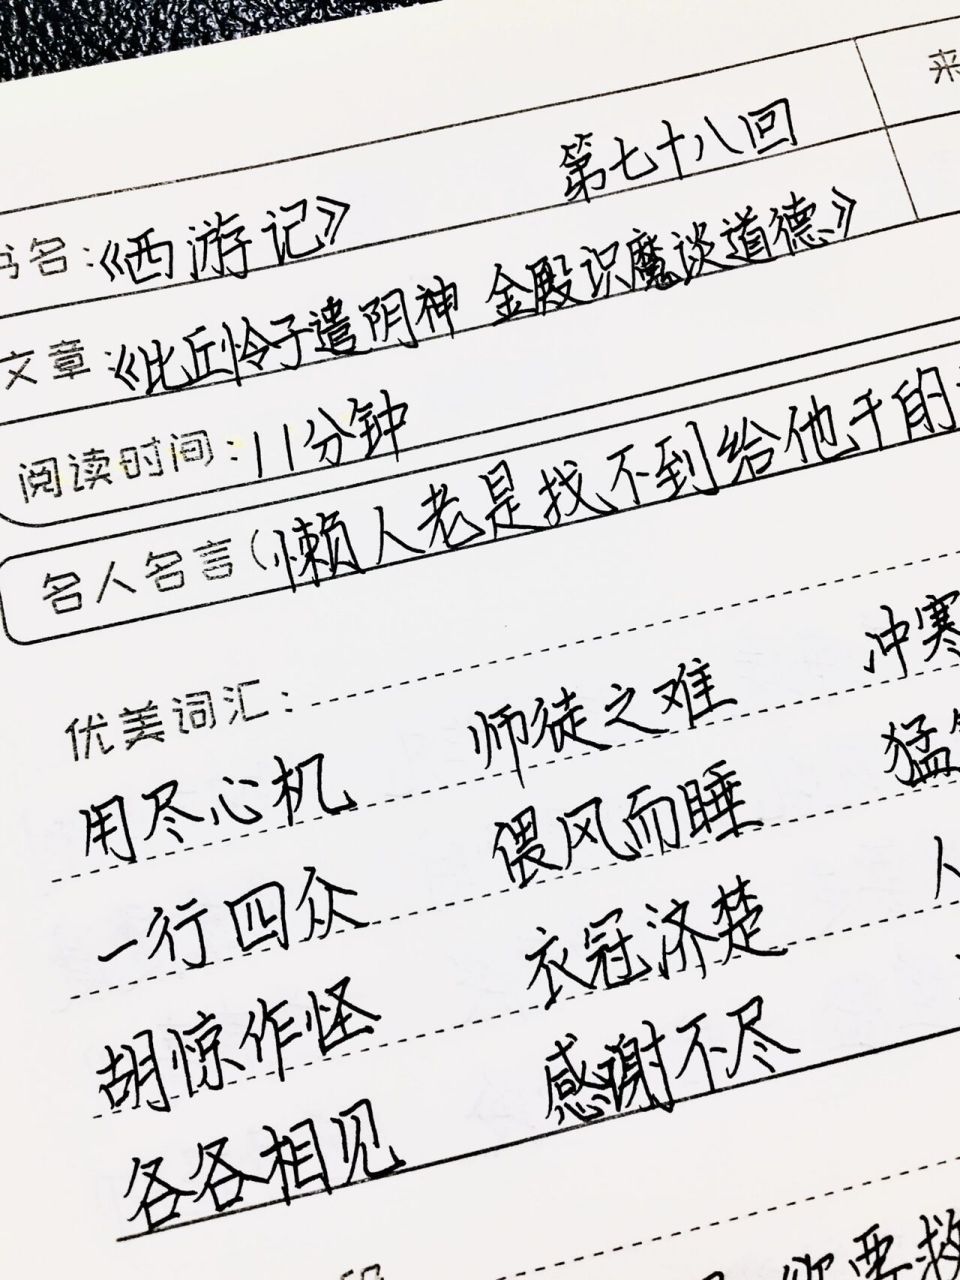 来
第七十八回
书名:《西游记》
文章:《比丘怜子遣阴神 金殿识魔谈道德》
阅读时间:11分钟
名人名言(懒人老是找不到给他干的
优美词汇:
用尽心机 师徒之难 冲寒
一行四众 偎风而睡 猛
胡惊作怪 衣冠济楚 人
各各相见 感谢不尽
要救